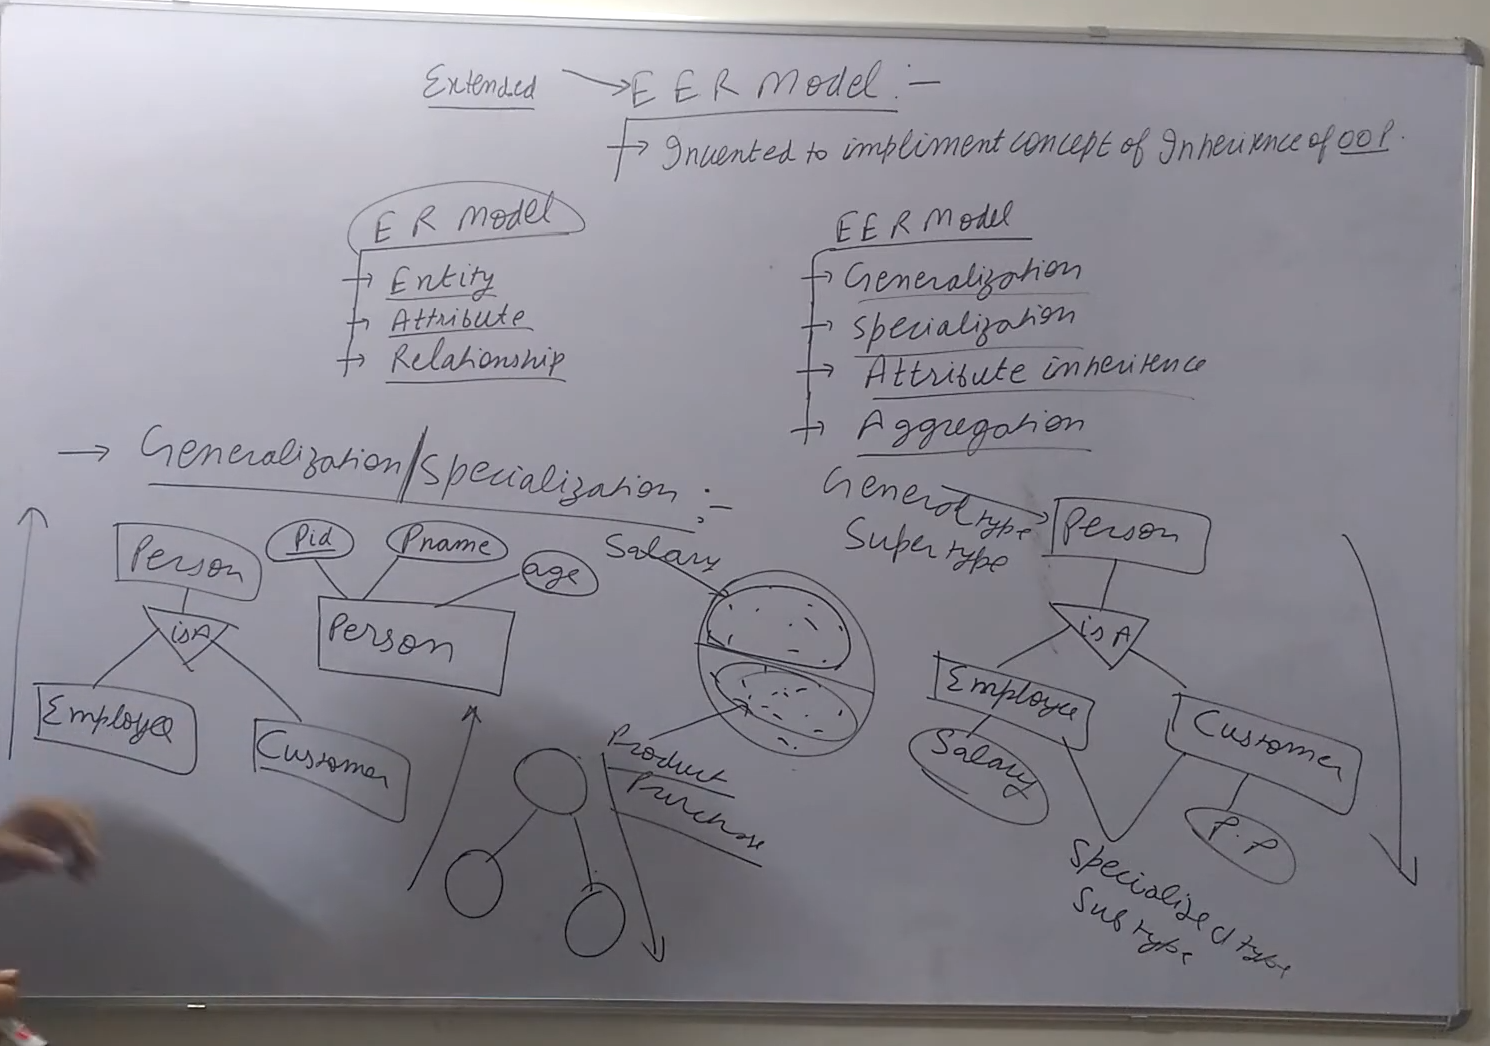 Extended → EER Model :-
→ Invented to impliment concept of Inherience of OOP.
ER Model
→ Entity
→ Attribute
→ Relationship
EER Model
→ Generalization
→ Specialization
→ Attribute inheritence
→ Aggregation
→ Generalization/Specialization :-
Person
isA
Employee
Customer
Pid
Pname
age
Person
Salary
Product
Purchase
General type
Super type
Person
isA
Employe
Customer
Salary
P.P
Specialized type
Sub type